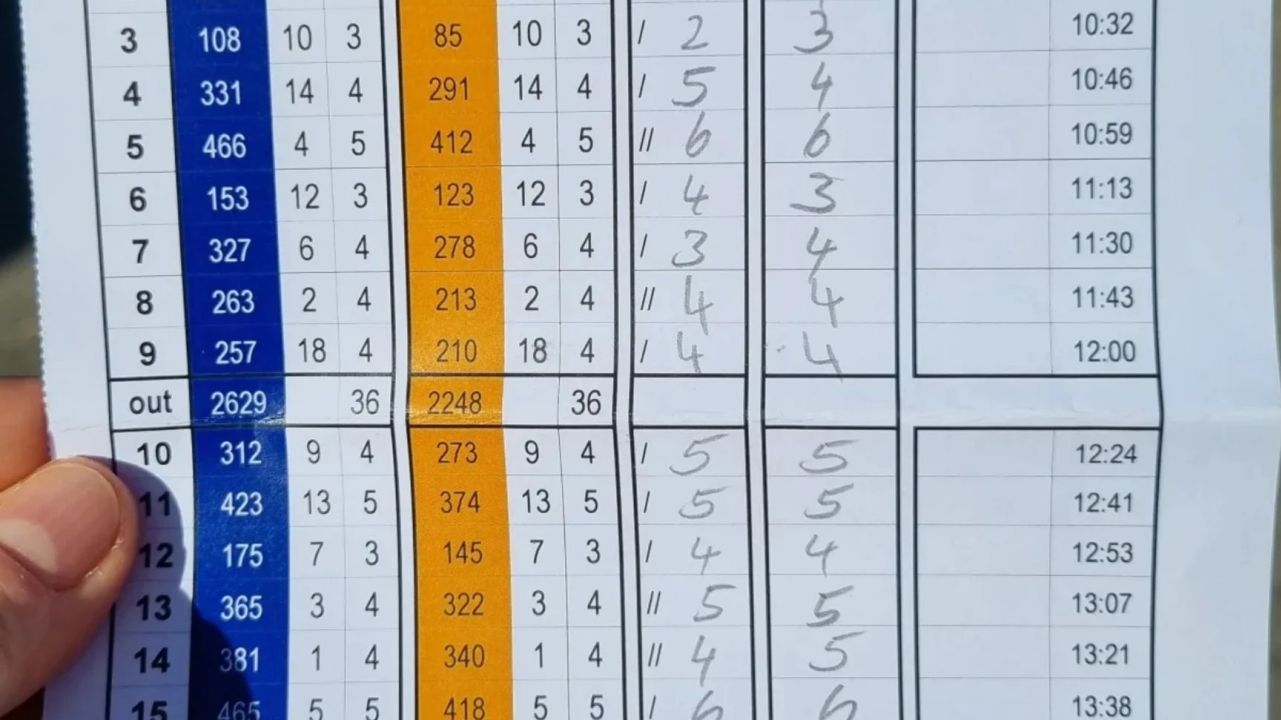 3 108 10 3 85 10 3 / 2 3 10:32
4 331 14 4 291 14 4 / 5 4 10:46
5 466 4 5 412 4 5 // 6 6 10:59
6 153 12 3 123 12 3 / 4 3 11:13
7 327 6 4 278 6 4 / 3 4 11:30
8 263 2 4 213 2 4 // 4 4 11:43
9 257 18 4 210 18 4 / 4 4 12:00
out 2629 36 2248 36
10 312 9 4 273 9 4 / 5 5 12:24
11 423 13 5 374 13 5 / 5 5 12:41
12 175 7 3 145 7 3 / 4 4 12:53
13 365 3 4 322 3 4 // 5 5 13:07
14 381 1 4 340 1 4 // 4 5 13:21
15 465 5 5 418 5 5 / 6 6 13:38